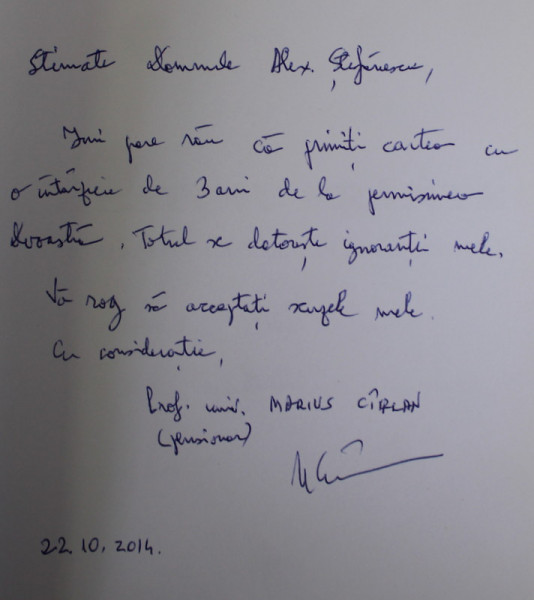 Stimate Domnule Alex. Ștefănescu,
Îmi pare rău că primiți cartea cu
o întârziere de 3 ani de la permisiunea
Dvoastră. Totul se datorește ignoranții mele.
Vă rog să acceptați scuzele mele.
Cu considerație,
Prof. univ. MARIUS CÎRLAN
(pensionar)
22.10.2014.